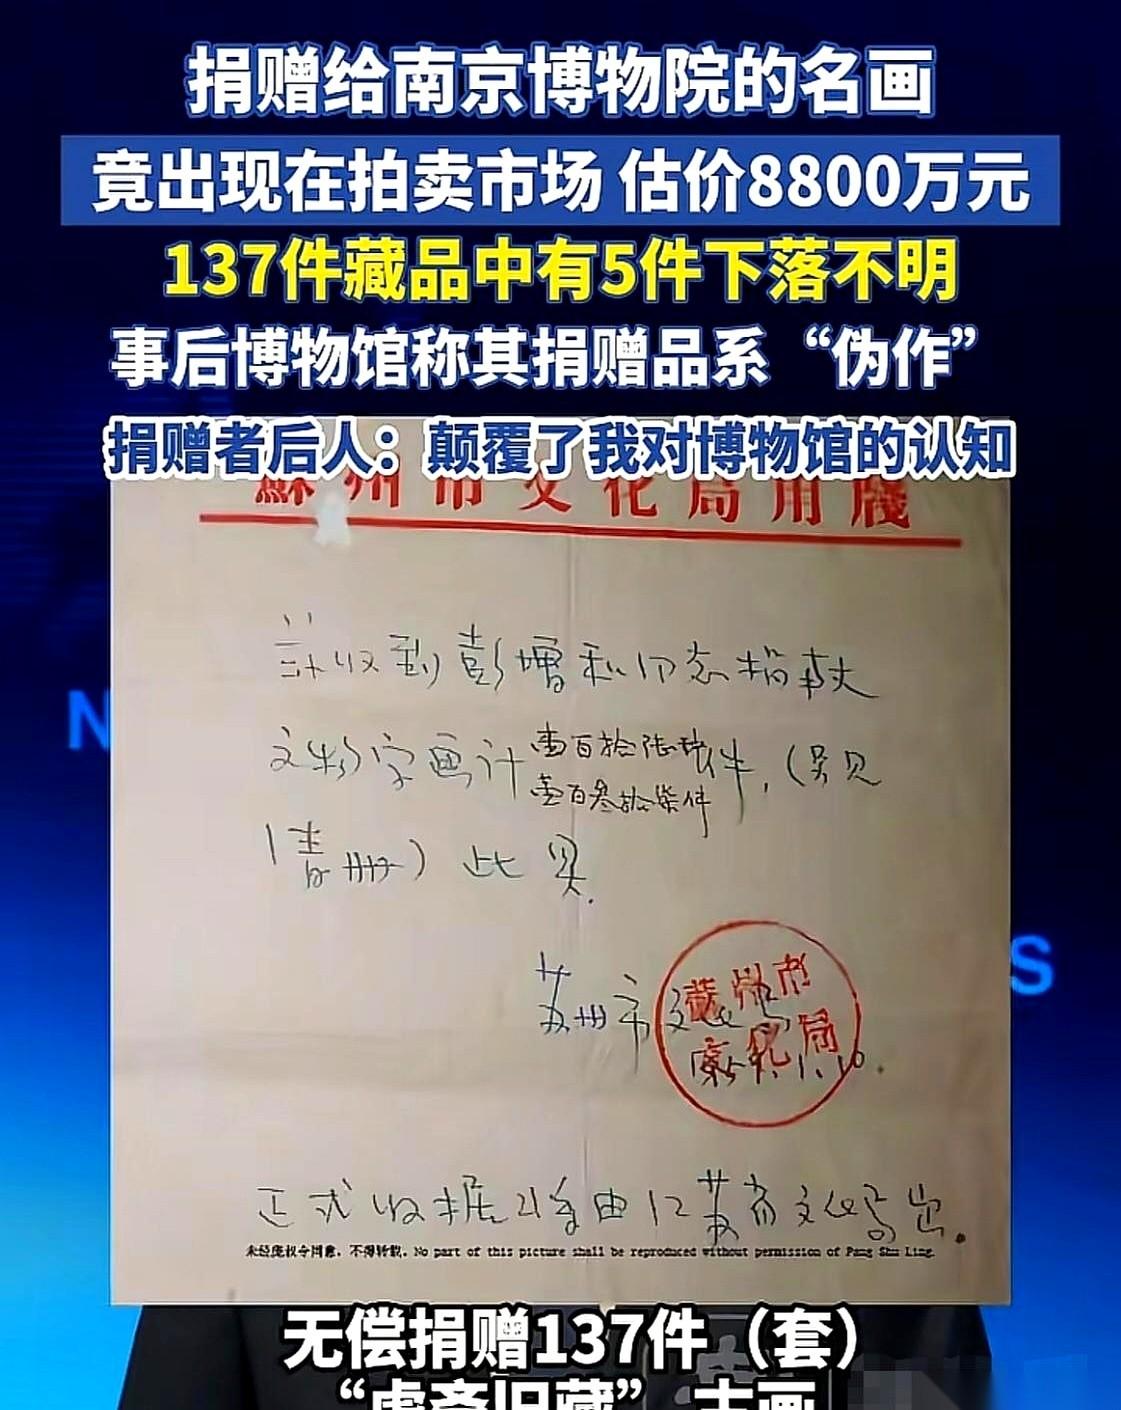 捐赠给南京博物院的名画
竟出现在拍卖市场 估价8800万元
137件藏品中有5件下落不明
事后博物馆称其捐赠品系“伪作”
捐赠者后人：颠覆了我对博物馆的认知
蘇州市文化局用牋
兹收到彭增和同志捐献
文物字画计壹百叁拾柒件，（另见
清册）此具.
苏州市文化局
59.1.10.
蘇州市
文化局
正式收据将由江苏省文化局出.
未经庞叔令同意，不得转载。No part of this picture shall be reproduced without permission of Pang Shu Ling.
无偿捐赠137件（套）
“虚斋旧藏” 古画